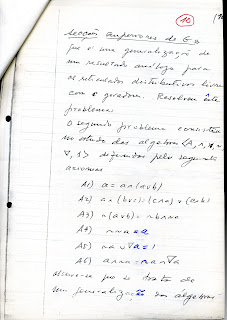 10
secções superiores de G
que é uma generalização de
um resultado análogo para
os reticulados distributivos livres
com n geradores. Resolvem êste
problema.
O segundo problema consistia
no estudo das álgebras (A, ∧, ∨, ~,
∇, 1) definidas pelos seguintes
axiomas
A1) a = a∧(a∨b)
A2) a∧(b∨c) = (c∧a)∨(a∧b)
A3) ~(a∨b) = ~b∧~a
A4) ~~a = a
A5) ~a∨∇a = 1
A6) a∧~a = ~a∧∇a
observe-se que se trata de
uma generalização das álgebras